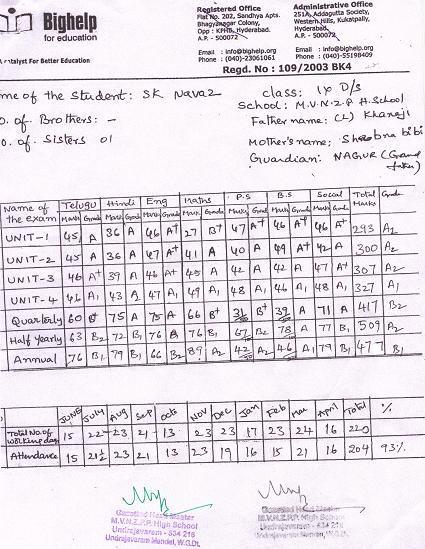 Bighelp
for education
A Catalyst For Better Education
Registered Office
Flat No. 202, Sandhya Apts.
Bhagyanagar Colony,
Opp : KPHB, Hyderabad.
A.P. - 500072
Email : info@bighelp.org
Phone : (040)-23061061
Administrative Office
251A, Addagutta Society,
Western Hills, Kukatpally,
Hyderabad.
A.P. - 500072
Email : info@bighelp.org
Phone : (040)-55198409
Regd. No : 109/2003 BK4
me of the Student: SK Navaz
o. of Brothers: -
o. of Sisters 01
class: IX D/S
School: M.V.N.Z.P H.School
Father name: (L) Khanaji
Mother's name: bibi
Guardian: NAGUR (Grand
Name of the exam Telugu Hindi Eng Maths P.S B.S Social Total Marks Grade
Mark Grade Mark Grade Mark Grade Mark Grade Mark Grade Mark Grade Mark Grade
UNIT-1 45 A 36 A 46 A+ 27 B+ 47 A+ 46 A+ 46 A+ 293 A2
UNIT-2 45 A 36 A 47 A+ 41 A 40 A 49 A+ 42 A 300 A2
UNIT-3 46 A+ 39 A 46 A+ 45 A 42 A 42 A 47 A+ 307 A2
UNIT-4 46 A1 43 A2 47 A1 49 A1 48 A1 46 A1 48 A1 327 A1
Quarterly 60 B+ 75 A 75 A 66 B+ 31 B+ 39 A 71 A 417 B2
Half Yearly 63 B2 72 B1 76 B 76 B1 67 B2 78 A 77 B1 509 A2
Annual 76 B1 79 B1 66 B2 89 A2 42 A2 46 A1 79 B1 477 B1
JUNE July Aug Sep Octo Nov Dec Jan Feb Mar April Total %
Total No. of working days 15 22 23 21 13 23 23 17 23 24 16 220
Attendance 15 21½ 23 21 13 23 19 16 15 21 16 204 93%
Gazetted Head Master
M.V.N.Z.P.P. High School
Undrajavaram - 534 216
Undrajavaram Mandal, W.G.Dt.
Gazetted Head Master
M.V.N.Z.P.P. High School
Undrajavaram - 534 216
Undrajavaram Mandal, W.G.Dt.